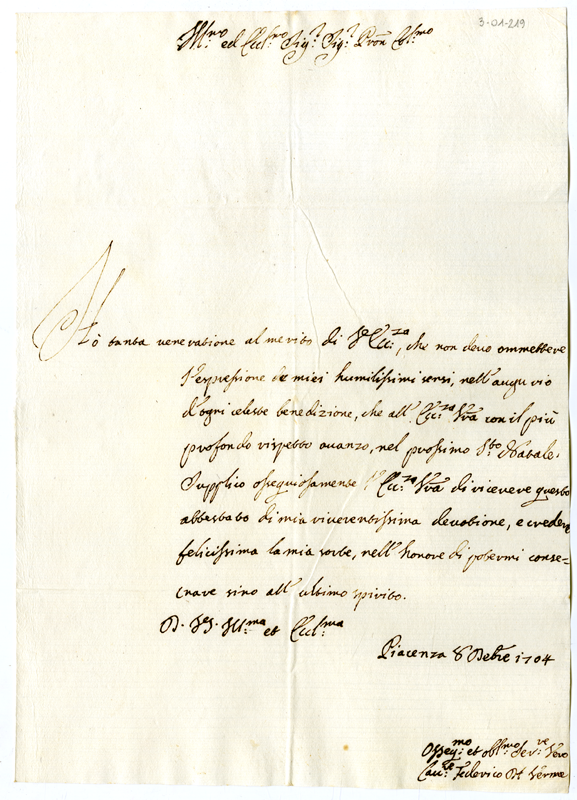 3-01-219
Ill:mo ed Ecc:mo Sig:r Sig:r Pron Col:mo
Hò tanta veneratione al merito di V:e Ecc:za, che non devo ommettere
l'espressione de miei humilissimi sensi, nell'augurio
d'ogni celeste benedizione, che all' Ecc:za Vra con il più
profondo rispetto avanzo, nel prossimo S:to Natale.
Supplico ossequiosamente l'Ecc:za Vra di ricevere questo
attestato di mia riverentissima devotione, e credere
felicissima la mia sorte, nell'honore di potermi conse=
crare sino all'ultimo spirito.
D. V.E. Ill:ma et Ecc:ma
Piacenza 8 Debre 1704
Osseq:mo et obl:mo Ser:re Vero
Federico Verme